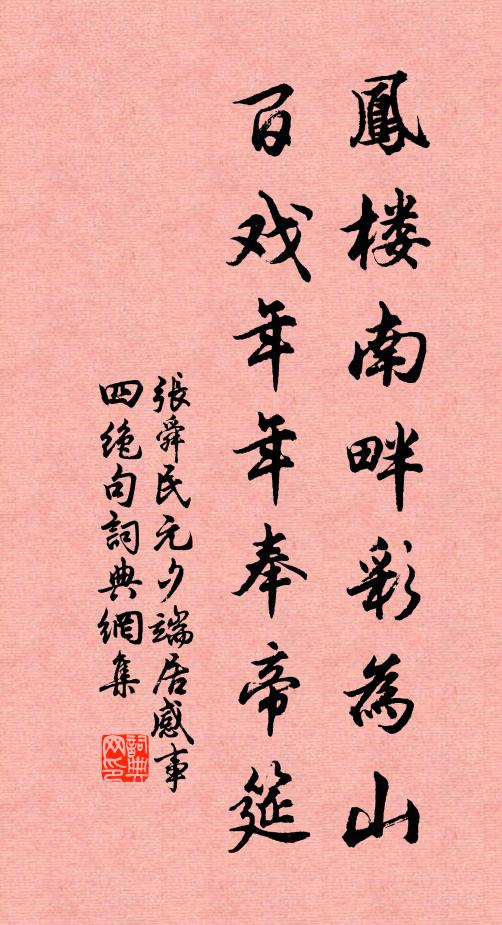 鳳楼南畔彩為山
百戏年年奉帝筵
張舜民元夕端居感事
四絶句詞典網集
詞典
网印